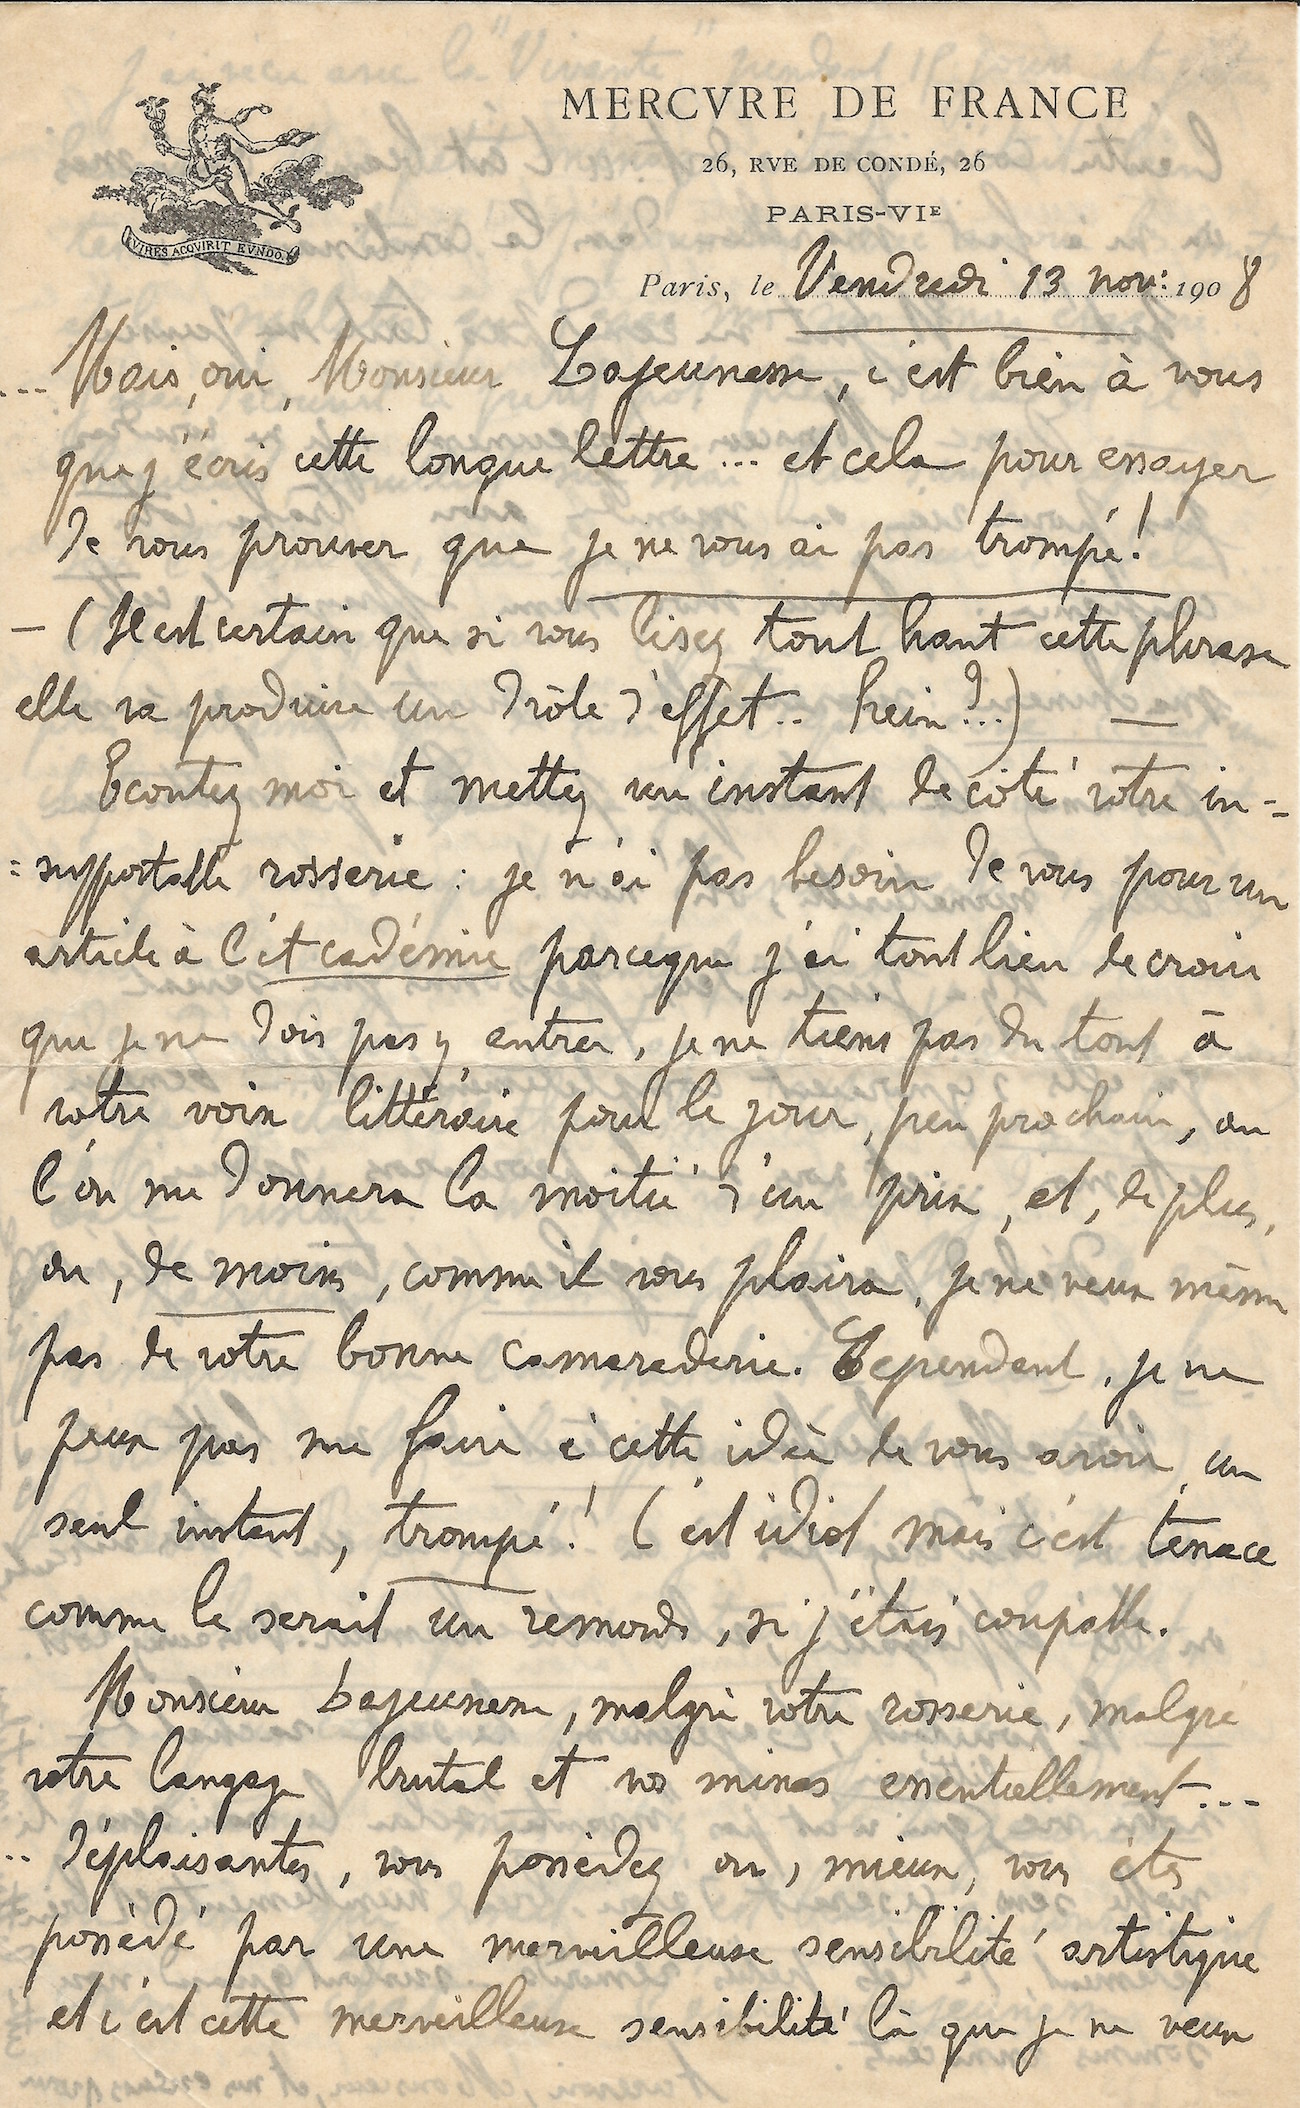 MERCVRE DE FRANCE
26, RVE DE CONDÉ, 26
PARIS-VIE
VIRES ACQVIRIT EVNDO
Paris, le Vendredi 13 nov: 1908
... Mais, oui, Monsieur Lajeunesse, c'est bien à vous
que j'écris cette longue lettre ... et cela pour essayer
de vous prouver que je ne vous ai pas trompé!
— (Il est certain que si vous lisez tout haut cette phrase
elle va produire un drôle d'effet .. hein?...) —
Ecoutez moi et mettez un instant de coté votre in-
=supportable rosserie : je n'ai pas besoin de vous pour un
article à l'Académie parceque j'ai tout lieu de croire
que je ne dois pas y entrer, je ne tiens pas du tout à
votre voix littéraire pour le jour, peu prochain, ou
l'on me donnera la moitié d'un prix, et, de plus,
ou, de moins, comme il vous plaira, je ne veux même
pas de votre bonne camaraderie. Cependant, je ne
peux pas me faire à cette idée de vous avoir, un
seul instant, trompé! C'est idiot mais c'est tenace
comme le serait un remords, si j'étais coupable.
Monsieur Lajeunesse, malgré votre rosserie, malgré
votre langage brutal et vos mines essentiellement...
.. déplaisantes, vous possédez ou, mieux, vous êtes
possédé par une merveilleuse sensibilité artistique
et c'est cette merveilleuse sensibilité là que je ne veux